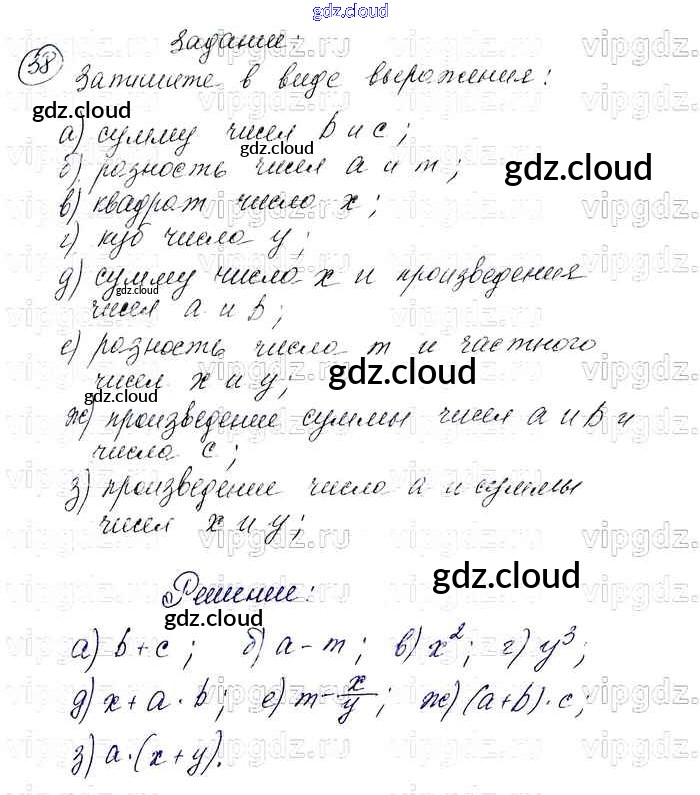 gdz.cloud
Задание:
38 Запишите в виде выражения:
а) сумму чисел b и c;
б) разность чисел a и m;
в) квадрат числа x;
г) куб числа y;
д) сумму числа x и произведения
чисел a и b;
е) разность числа m и частного
чисел x и y;
ж) произведение суммы чисел a и b и
числа c;
з) произведение числа a и суммы
чисел x и y;
Решение:
а) b + c; б) a - m; в) x²; г) y³;
д) x + a · b; е) m - x/y; ж) (a + b) · c;
з) a · (x + y).
gdz.cloud
gdz.cloud
gdz.cloud
gdz.cloud
gdz.cloud
gdz.cloud
gdz.cloud
vipgdz.ru